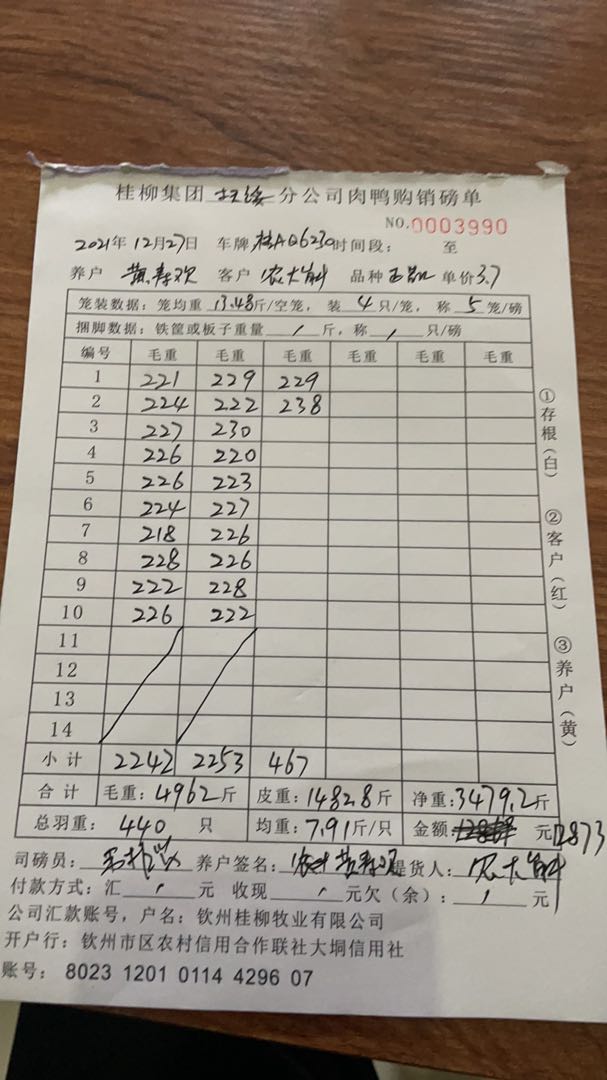 桂柳集团 分公司肉鸭购销磅单
NO.0003990
2021年12月27日 车牌桂AQ6230时间段： 至
养户 黄寿欢 客户 农大 品种 单价3.7
笼装数据：笼均重 13.48斤/空笼，装 4 只/笼，称 5 笼/磅
捆脚数据：铁筐或板子重量 / 斤，称 / 只/磅
编号 毛重 毛重 毛重 毛重 毛重 毛重
1 221 229 229
2 224 222 238
3 227 230
4 226 220
5 226 223
6 224 227
7 218 226
8 228 226
9 222 228
10 226 222
11
12
13
14
小计 2242 2253 467
合计 毛重：4962斤 皮重：1482.8斤 净重：3479.2斤
总羽重： 440 只 均重：7.91斤/只 金额： 元12873
司磅员： 养户签名： 黄寿欢 提货人：农大
付款方式：汇 / 元 收现 / 元欠（余）： / 元
公司汇款账号，户名：钦州桂柳牧业有限公司
开户行：钦州市区农村信用合作联社大垌信用社
账号： 8023 1201 0114 4296 07
①存根（白）
②客户（红）
③养户（黄）